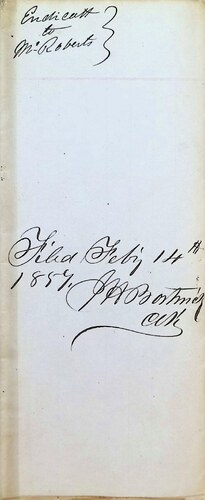 Endicott
to
McRoberts
Filed Feb'y 14th
1857.
J H Bostwick
Clk